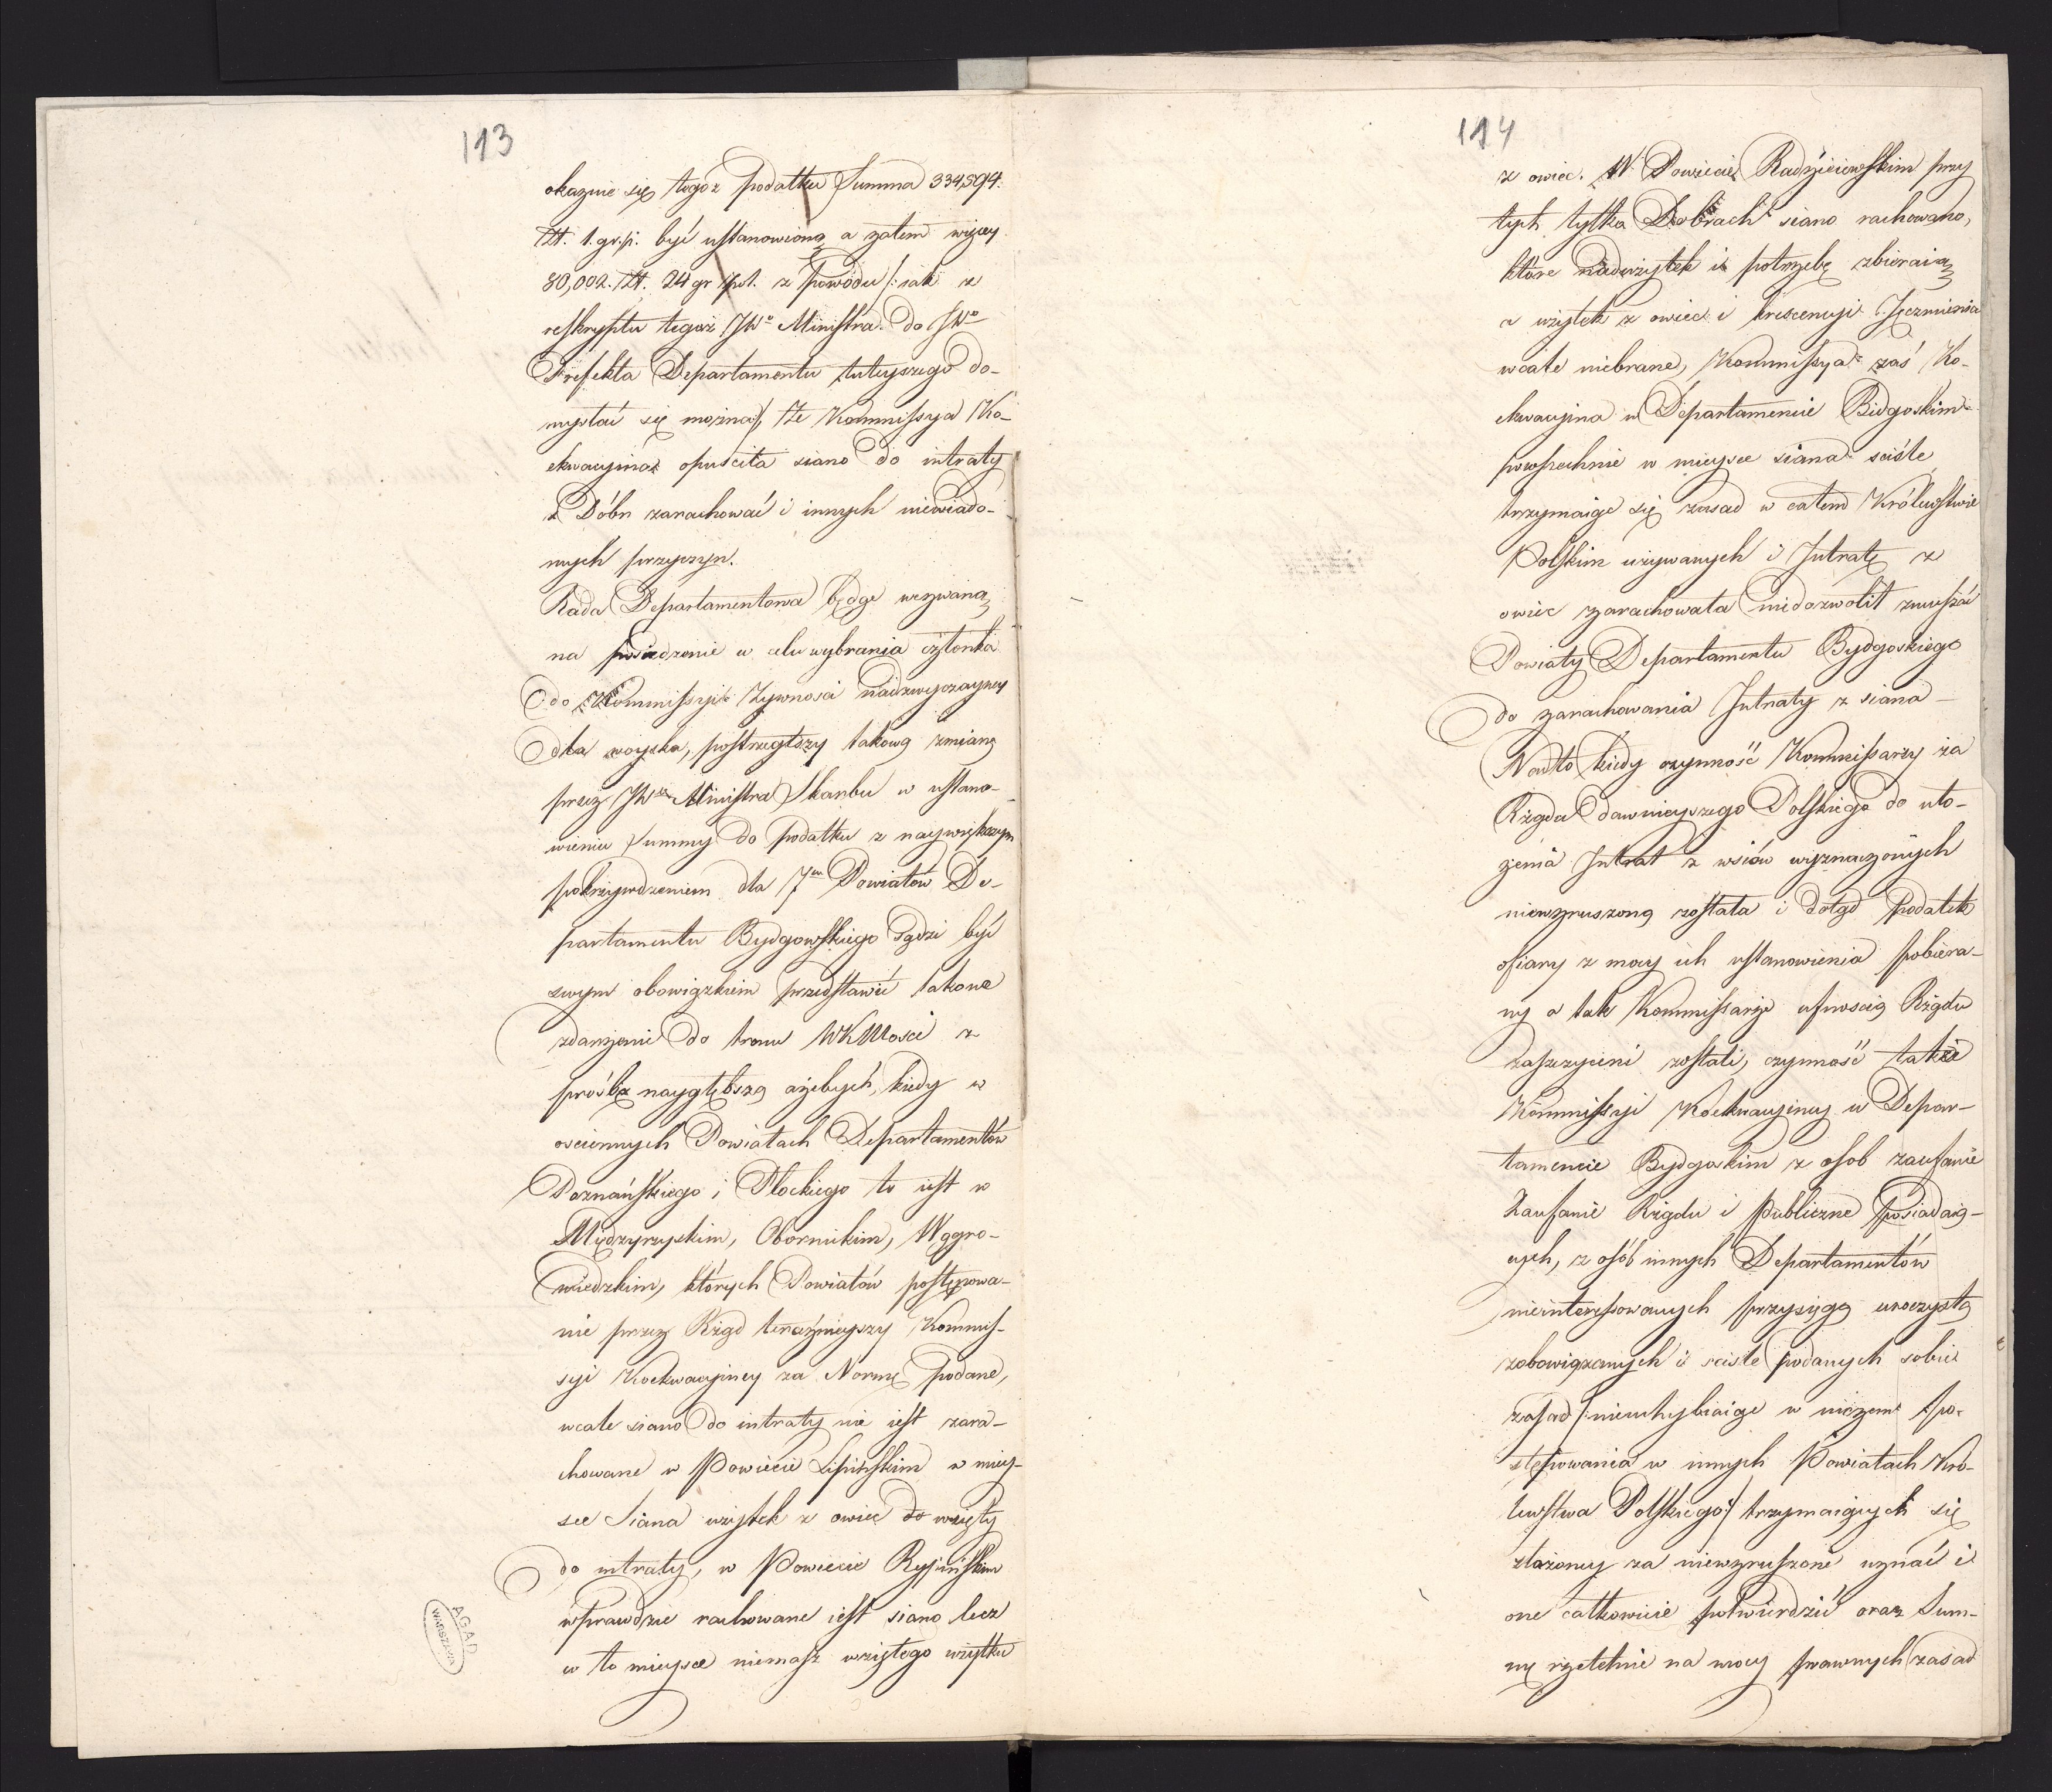 113
okazuie się tegoż podatku Summa 334,594.
Zł. 1. gr. p. być ustanowioną a zatem więcey
80,002. Zł. 24 gr pol. z powodu /: iak z
reskryptu tegoż JWo Ministra do JWo
Prefekta Departamentu tuteyszego do-
mysłać się można :/ że Kommissya Ko-
ekwacyina opuściła siano do intraty
z Dóbr zarachować i innych niewiado-
mych przyczyn.
Rada Departamentowa będąc wezwaną
na posiedzenie w celu wybrania członka
do Kommissyi Żywności nadzwyczayney
dla woyska, postrzegłszy takową zmianę
przez JWo Ministra Skarbu w ustano-
wieniu Summy do podatku z naywiększym
pokrzywdzeniem dla 7miu Powiatów De-
partamentu Bydgowskiego sądzi być
swym obowiązkiem przedstawić takowe
zdarzenie do tronu WKMości z
prośbą naygłębszą ażebyś, kiedy w
ościennych Powiatach Departamentów
Poznańskiego i Płockiego to iest w
Międzyrzyskim, Obornickim, Wągro-
wieckim, których Powiatów postępowa-
nie przez Rząd teraźnieyszy Kommis-
syi Koekwacyiney za Normę podane,
wcale siano do intraty nie iest zara-
chowane w Powiecie Lipińskim w miey-
sce Siana użytek z owiec do wzięty
do intraty, w Powiecie Rypińskim
wprawdzie rachowane iest siano lecz
w to mieysce niemasz wziętego użytku
AGAD
WARSZAWA
114
z owiec. W Powiecie Radzieiewskim przy
tych tylko Dobrach siano rachowano,
które nadużytek i potrzebę zbieraią
a użytek z owiec i krescencyi Jęczmienia
wcale niebrane, Kommissya zaś Ko-
ekwacyina w Departamencie Bidgoskim
powszechnie w mieysce siana ściśle
trzymaiąc się zasad w całem Królewstwie
Polskim używanych i Intratę z
owiec zarachowała niedozwolił zmuszać
Powiaty Departamentu Bydgoskiego
do zarachowania Intraty z siana –
Nadto kiedy czynność Kommissarzy za
Rządu dawnieyszego Polskiego do uło-
żenia Intrat z wsiów wyznaczonych
niewzruszoną została i dotąd podatek
ofiary z mocy ich ustanowienia pobiera-
ny a tak Kommissarze ufnością Rządu
zaszczyceni zostali, czynność także
Kommissyi Koekwacyiney w Depar-
tamencie Bydgoskim z osob zaufanie
Zaufanie Rządu i Publiczne posiadaią-
cych, z osób innych Departamentów
nieinteressowanych przysięgą uroczystą
zobowiązanych i ściśle podanych sobie
zasad /: nieuchybiaiąc w niczem po-
stępowania w innych Powiatach Kró-
lewstwa Polskiego :/ trzymaiących się
złożoney za niewzruszone uznać i
one całkowicie potwierdzić oraz Sum-
mę rzetelnie na mocy prawnych zasad